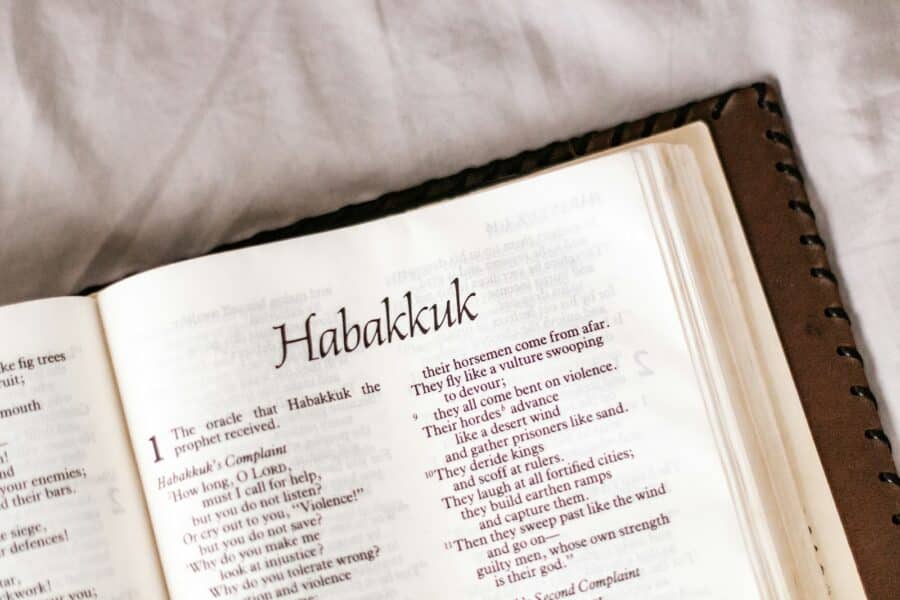 ke fig trees
ruit;
mouth
nd
your enemies;
d their bars.
e siege,
r defences!
tar,
ckwork!
you;
Habakkuk
1 The oracle that Habakkuk the
prophet received.
Habakkuk's Complaint
²How long, O LORD,
must I call for help,
but you do not listen?
Or cry out to you, "Violence!"
but you do not save?
³Why do you make me
look at injustice?
Why do you tolerate wrong?
tion and violence
their horsemen come from afar.
They fly like a vulture swooping
to devour;
⁹ they all come bent on violence.
Their hordesᵇ advance
like a desert wind
and gather prisoners like sand.
¹⁰They deride kings
and scoff at rulers.
They laugh at all fortified cities;
they build earthen ramps
and capture them.
¹¹Then they sweep past like the wind
and go on—
guilty men, whose own strength
is their god."
Second Complaint